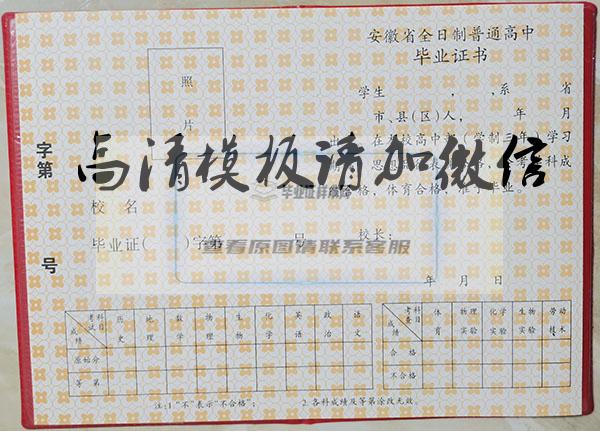 安徽省全日制普通高中
毕业证书
照
片
学生 , ,系 省
市、县(区)人, 年 月
在 校高中 (学制三年)学习
思 考 科成
格,体育合格,准予毕业。
高清模板请加微信
毕业证样本网
查看原图请联系客服
字第
号
校 名
毕业证( )字第 号
校长:
年 月 日
考试科目 成绩 历史 地理 数学 物理 生物 化学 英语 政治 语文
原始分
等 第
考查科目 成绩 体育 物理实验 化学实验 生物实验 劳动技术
合 格
不合格
注:1 "不"表示"不合格"; 2.各科成绩及等第涂改无效。